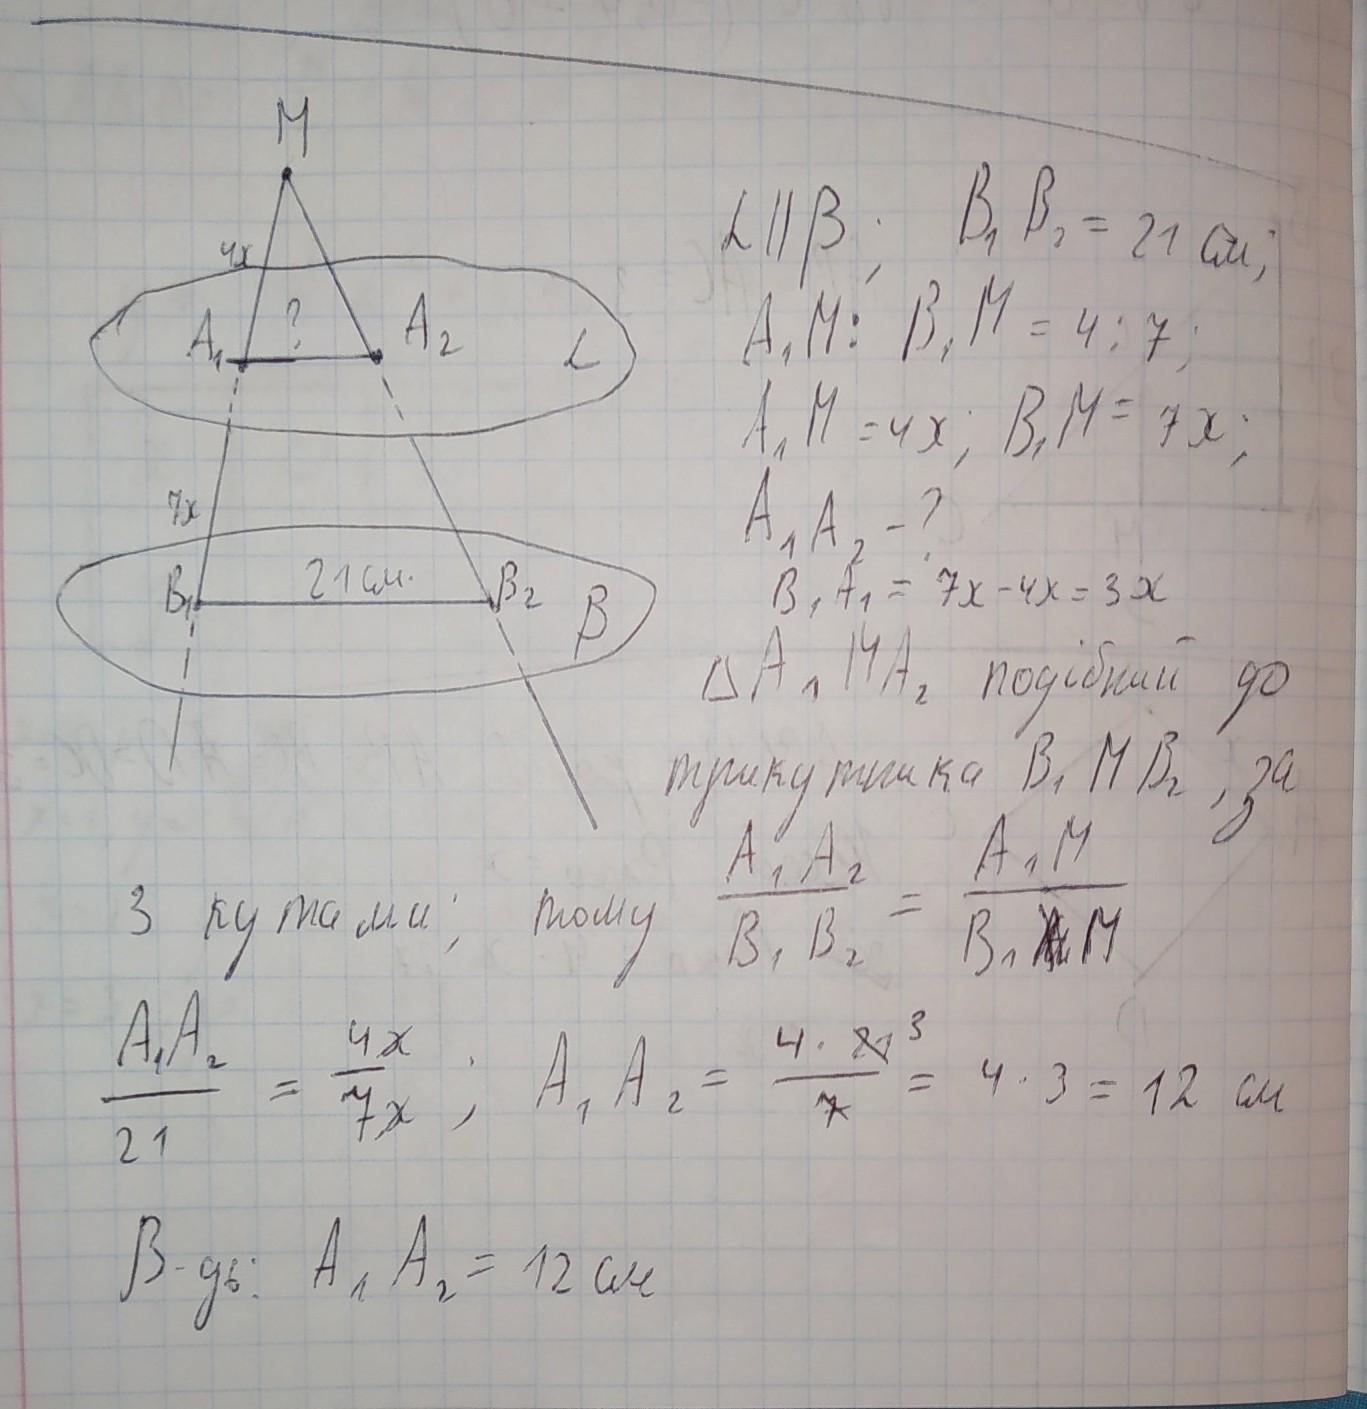 M
4x
A₁ ? A₂ L
7x
B₁ 21 см. B₂ β
L || β ; B₁ B₂ = 21 см;
A₁M : B₁M = 4 : 7;
A₁M = 4x; B₁M = 7x;
A₁A₂ - ?
B₁A₁ = 7x - 4x = 3x
△A₁MA₂ подібний до
трикутника B₁MB₂, за
3 кутами; тому A₁A₂/B₁B₂ = A₁M/B₁M
A₁A₂/21 = 4x/7x ; A₁A₂ = 4·21/7 3 = 4·3 = 12 см
В-дь: A₁A₂ = 12 см